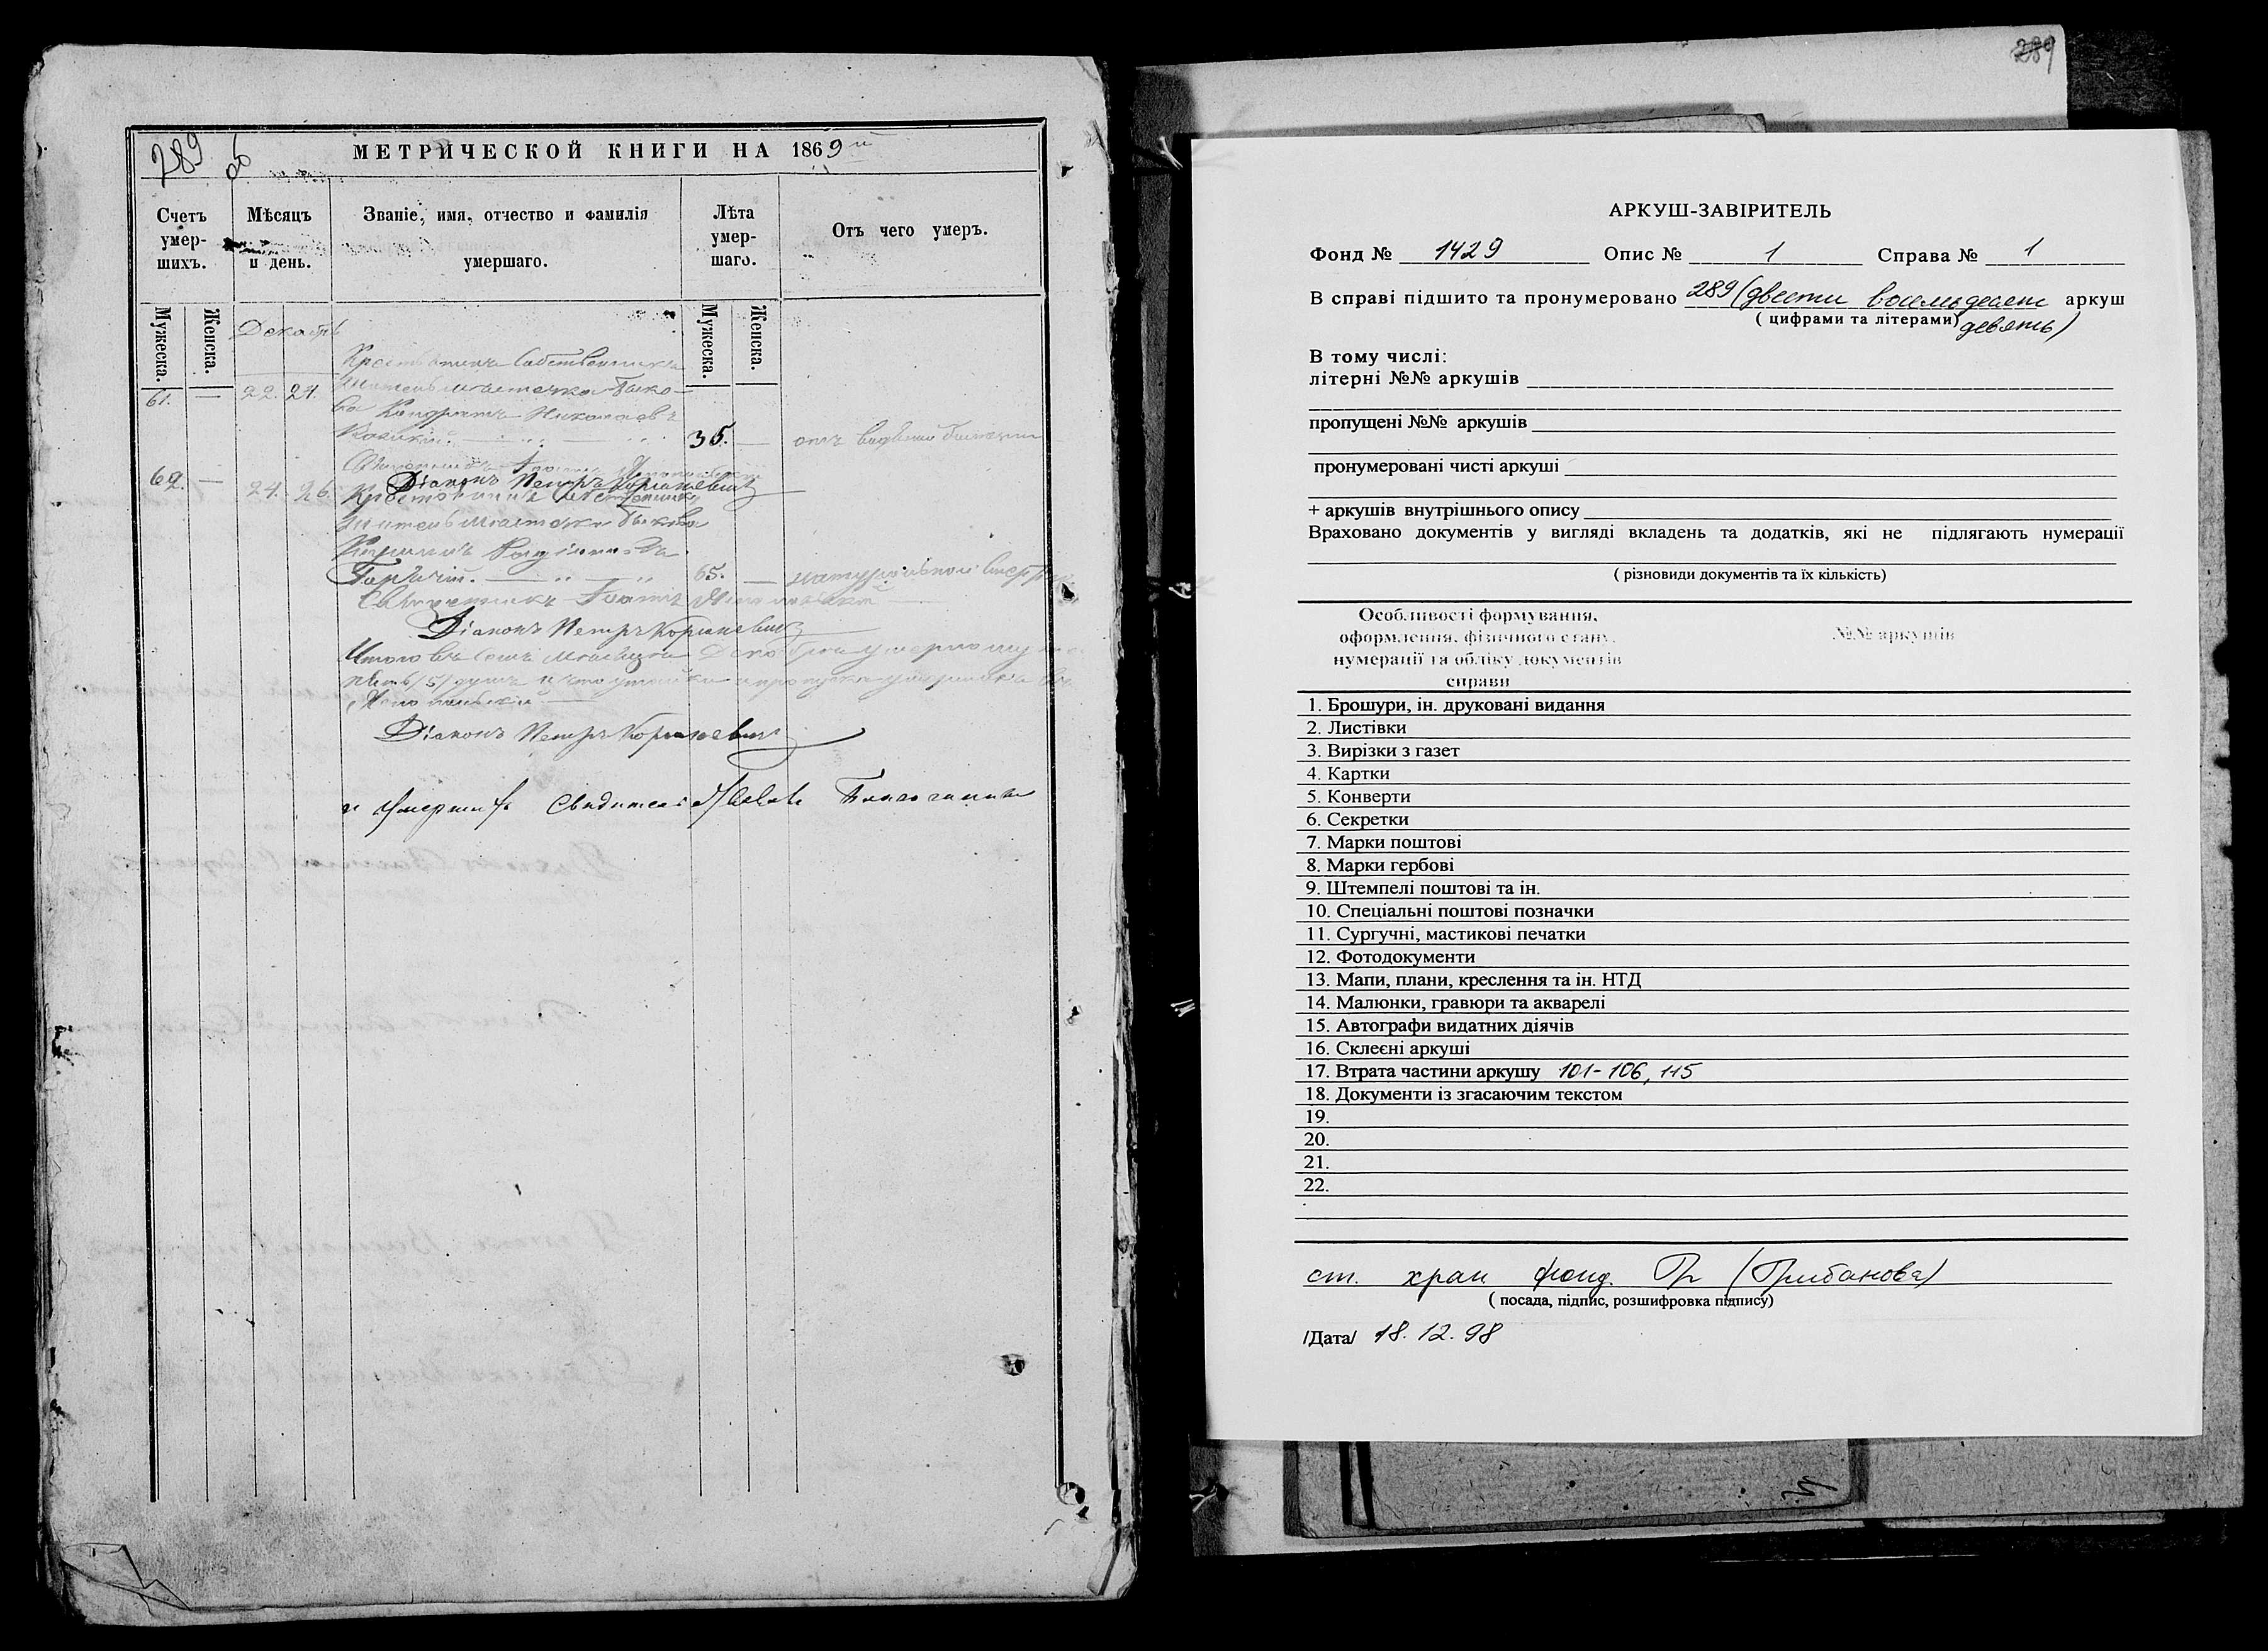 289 об
МЕТРИЧЕСКОЙ КНИГИ НА 1869
Счетъ умер-шихъ.
Мѣсяцъ и день.
Званіе, имя, отчество и фамилія умершаго.
Лѣта умер-шаго.
Отъ чего умеръ.
Мужеска.
Женска.
Мужеска.
Женска.
Крестьянинъ Собственникъ
61. — 22. 24. житель местечка Быко-
ва Кондратъ Николаевъ
35. — отъ
Священникъ Іоаннъ
Діаконъ Петръ Корсакевичъ
62. — 24. 26. Крестьянинъ Собственникъ
житель местечка Быкова
65. —
Священникъ Іоаннъ
Діаконъ Петръ Корсакевичъ
Итого въ семъ месяце Декабре умерло
пять /5/ душъ
Діаконъ Петръ Корсакевичъ
и умершихъ
289
АРКУШ-ЗАВІРИТЕЛЬ
Фонд № 1429 Опис № 1 Справа № 1
В справі підшито та пронумеровано 289 (двести восемьдесят аркуш
( цифрами та літерами) девять)
В тому числі:
літерні №№ аркушів
пропущені №№ аркушів
пронумеровані чисті аркуші
+ аркушів внутрішнього опису
Враховано документів у вигляді вкладень та додатків, які не підлягають нумерації
( різновиди документів та їх кількість)
Особливості формування,
оформлення, фізичного стану, №№ аркушів
нумерації та обліку документів
справи
1. Брошури, ін. друковані видання
2. Листівки
3. Вирізки з газет
4. Картки
5. Конверти
6. Секретки
7. Марки поштові
8. Марки гербові
9. Штемпелі поштові та ін.
10. Спеціальні поштові позначки
11. Сургучні, мастикові печатки
12. Фотодокументи
13. Мапи, плани, креслення та ін. НТД
14. Малюнки, гравюри та акварелі
15. Автографи видатних діячів
16. Склеєні аркуші
17. Втрата частини аркушу 101-106, 115
18. Документи із згасаючим текстом
19.
20.
21.
22.
ст. хран фонд. Гр (Грибанова)
( посада, підпис, розшифровка підпису)
/Дата/ 18. 12. 98